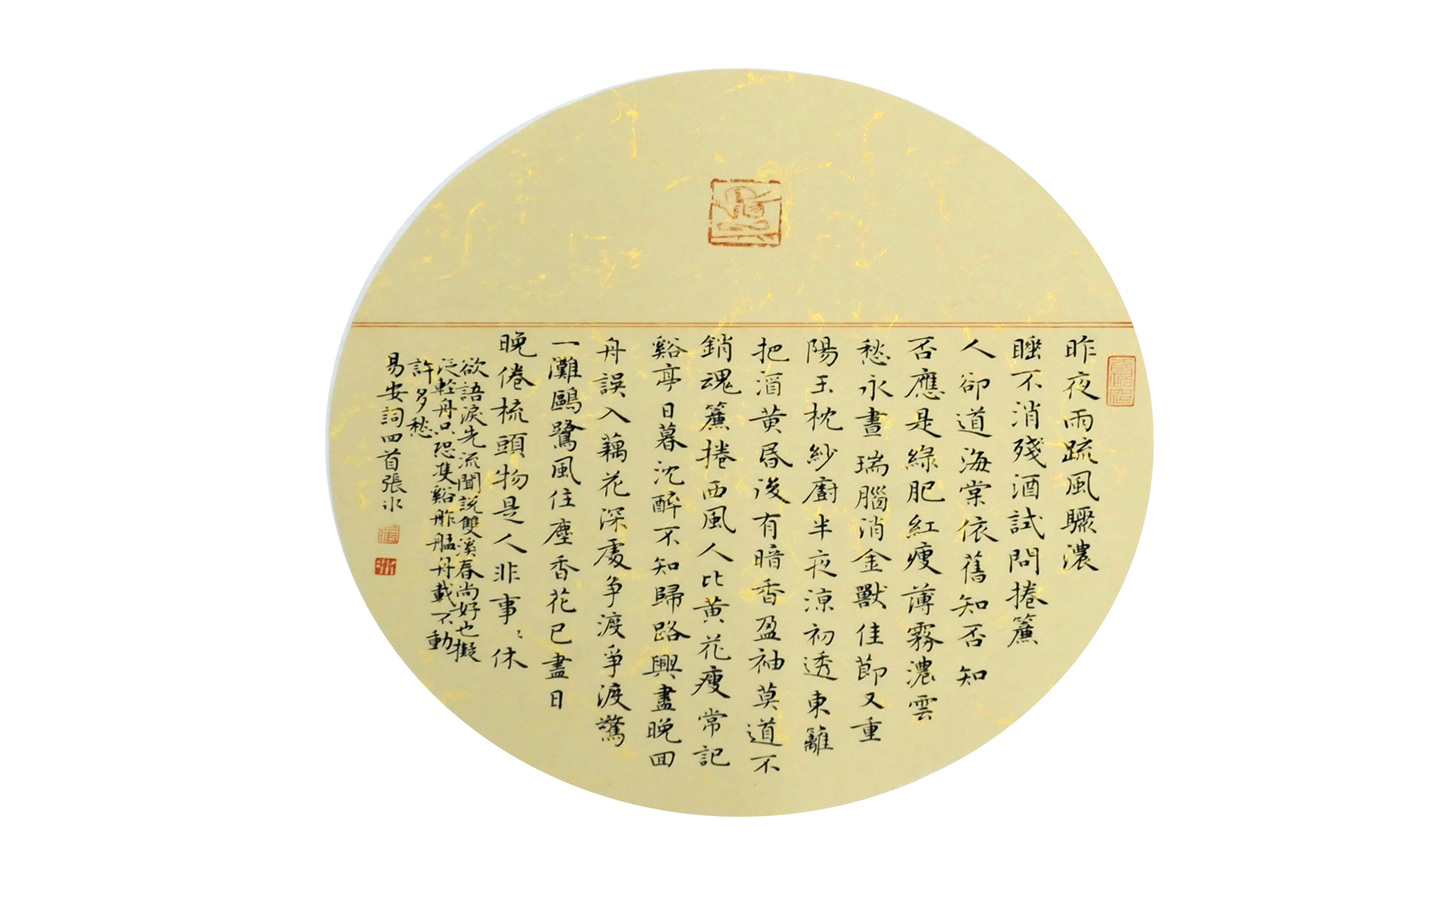 昨夜雨疏風驟濃
睡不消殘酒試問捲簾
人卻道海棠依舊知否知
否應是綠肥紅瘦薄霧濃雲
愁永晝瑞腦消金獸佳節又重
陽玉枕紗廚半夜涼初透東籬
把酒黃昏後有暗香盈袖莫道不
銷魂簾捲西風人比黃花瘦常記
谿亭日暮沈醉不知歸路興盡晚回
舟誤入藕花深處爭渡爭渡驚
一灘鷗鷺風住塵香花已盡日
晚倦梳頭物是人非事〻休
欲語淚先流聞說雙溪春尚好也擬
泛輕舟只恐隻谿舴艋舟載不動
許多愁
易安詞四首張冰